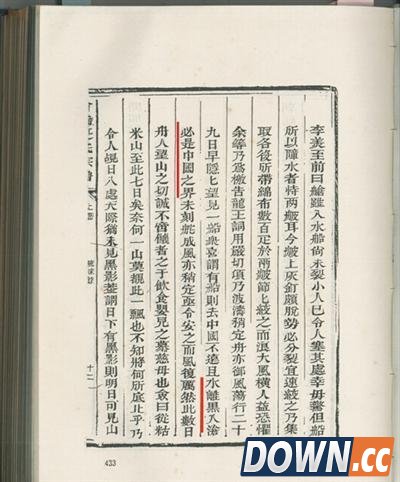 李美至前曰艙雖入水船尚未裂小人已令人塞其處幸毋驚但船
所以障水者恃兩皷耳今皷上灰釘頗脫勢必分裂宜速縛之乃集
取各役所帶綿布數百疋於兩皷節匕縛之而浪大風橫人益恐懼
余等乃為檄告龍王詞用嚴切項乃波濤稍定舟亦御風蕩行二十
九日早隱匕望見一船眾喜謂有船則去中國不遠且水離黑入滄
必是中國之界未刻舵成風亦稍定亟令安之而風復厲然此數日
舟人望山之切誠不啻饑者之于飲食嬰兒之慕慈母也僉曰從粘
米山至此七日矣奈何一山莫覩此一飄也不知將何所底止乎乃
令人視日入處天際猶未見黑影蓋謂日下有黑影則明日可見山
十二
433
DOWN.cc